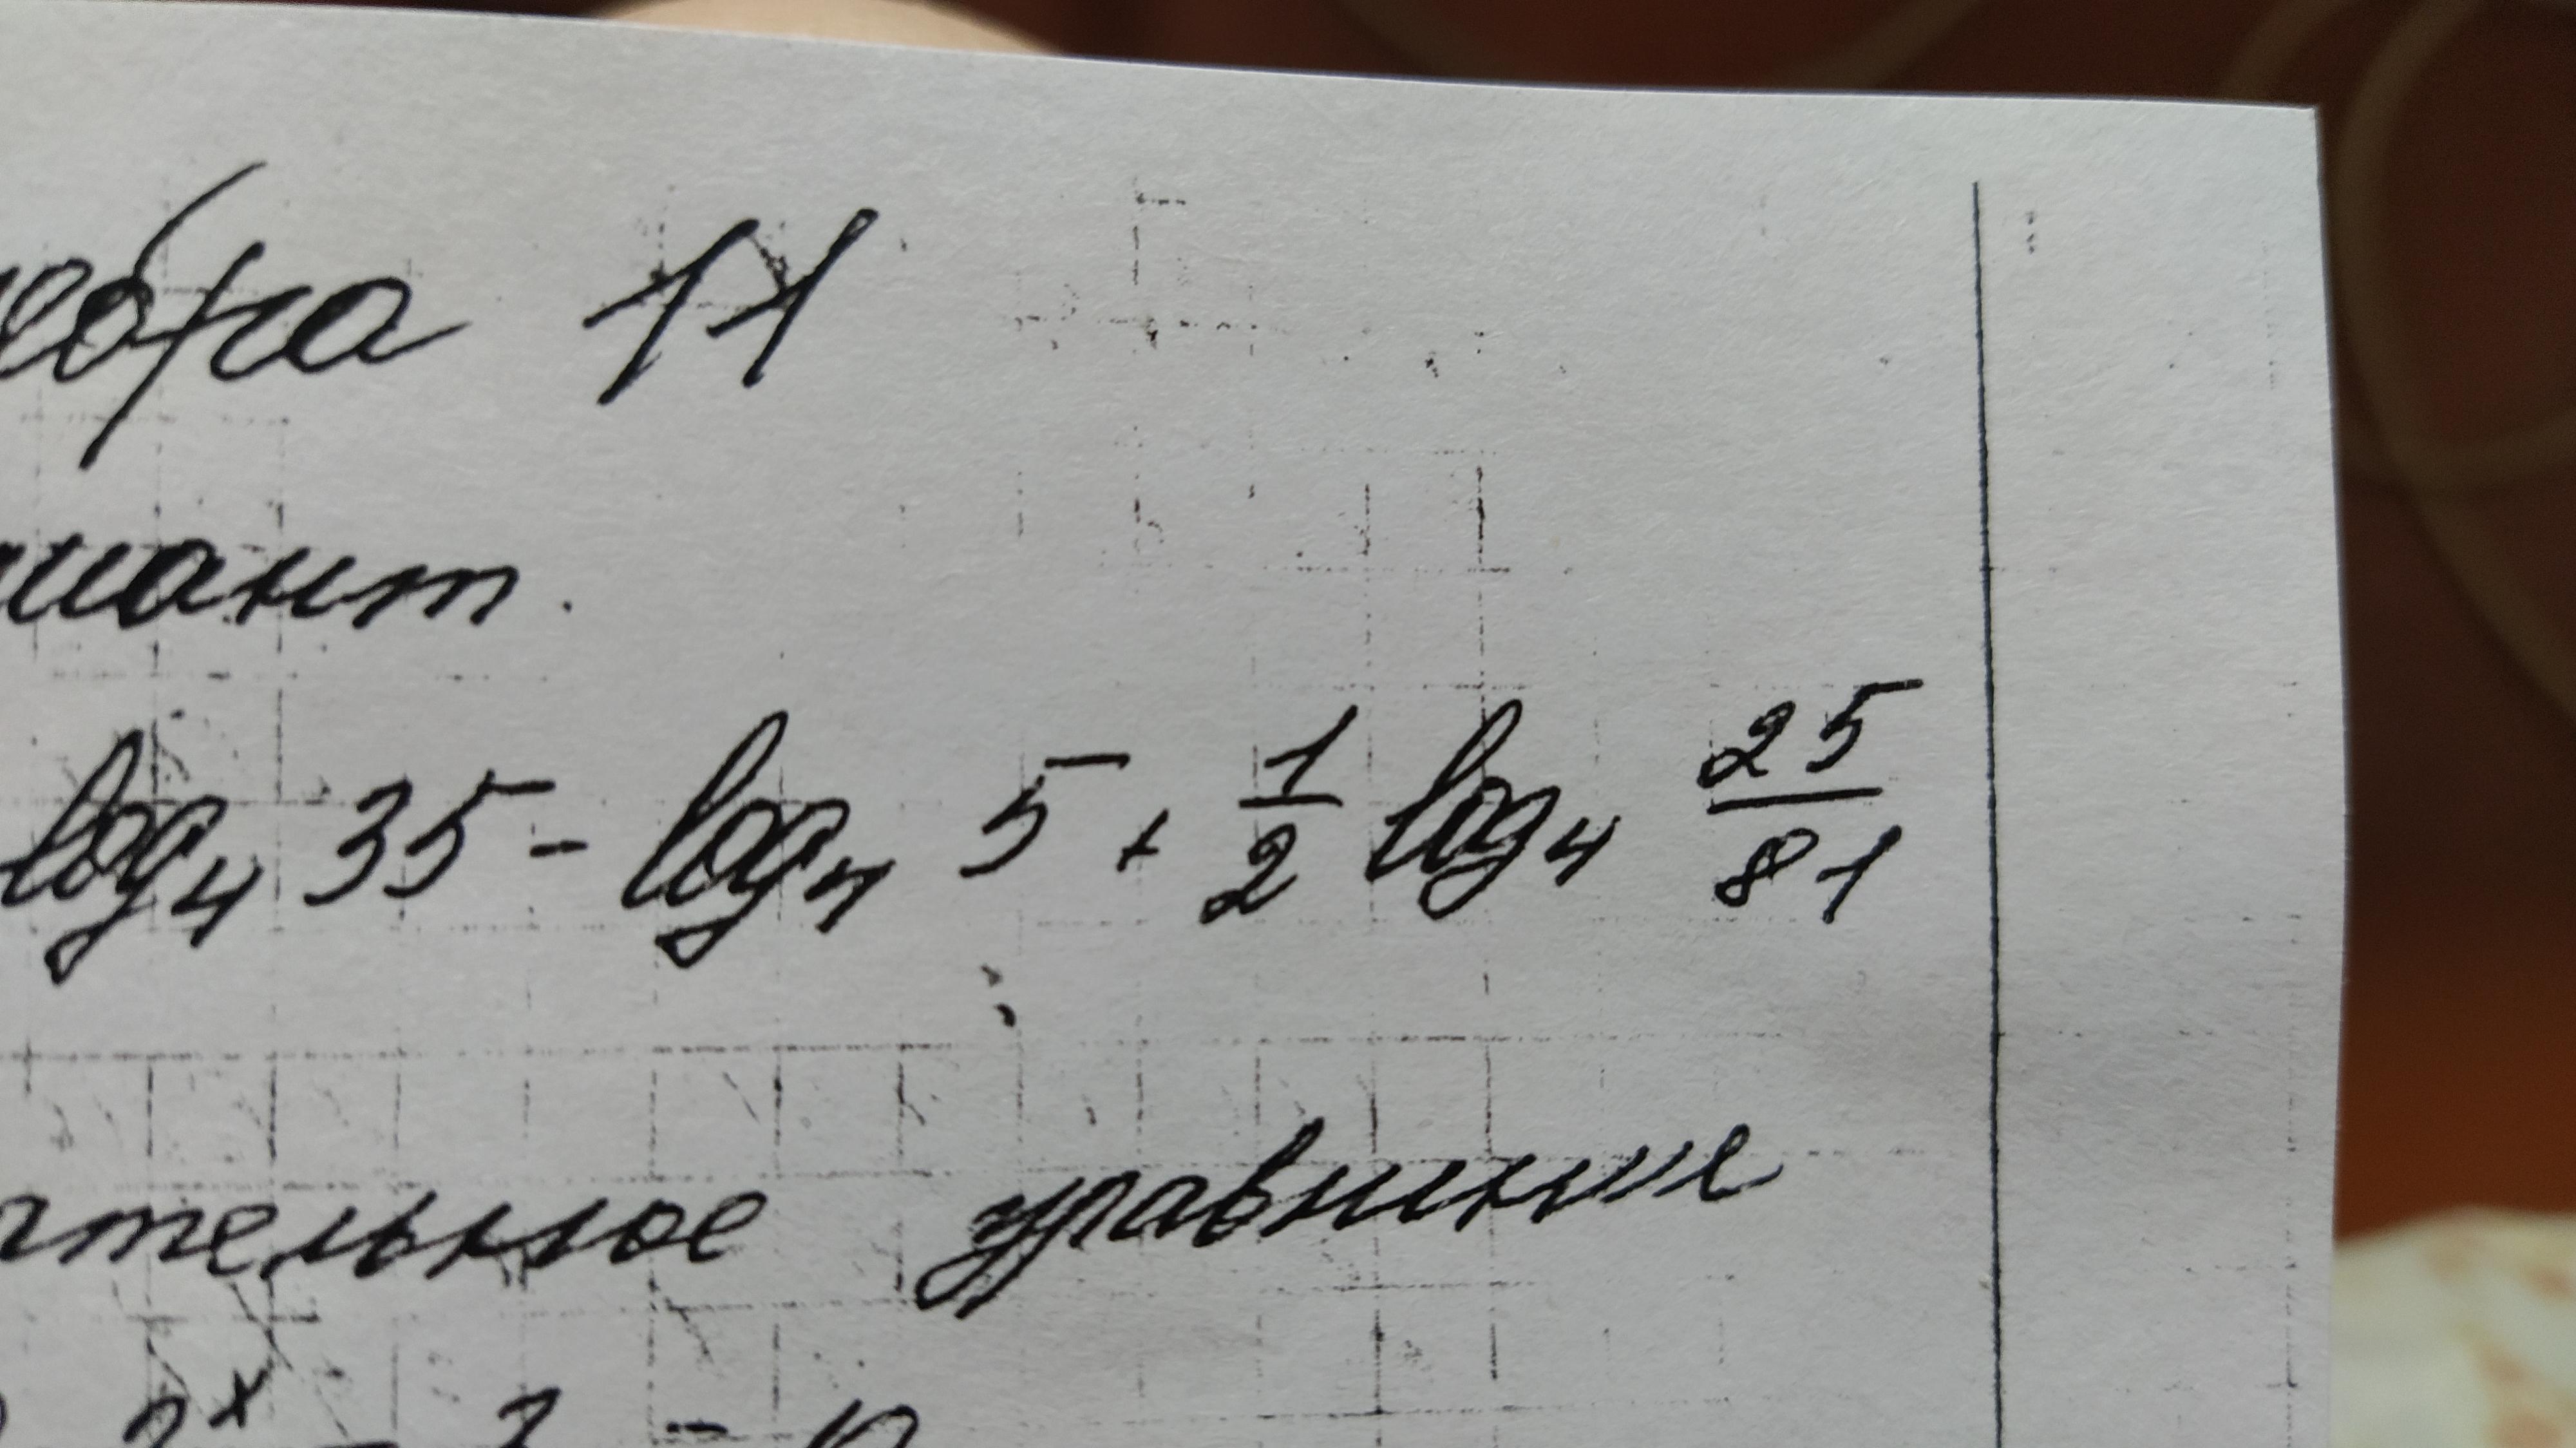 ебра 11
иант.
log₄ 35 - log₄ 5 + 1/2 log₄ 25/81
ательное уравнение
2ˣ